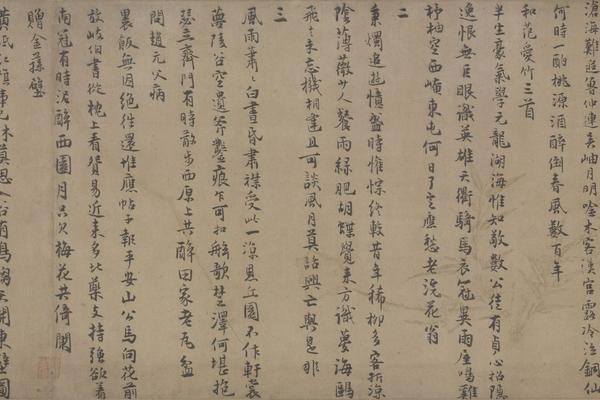 滄海難追魯仲連玄岫月明唫木客漢宮露冷泣銅仙
何時一酌桃源酒醉倒春風數百年
和范愛竹三首
半生豪氣學元龍湖海惟知敬數公徒有貞心招隱
逸恨無巨眼識英雄天衢騎馬衣冠異雨屋鳴雞
杼柚空西崦東屯何日了應愁老浣花翁
二
秉燭追遊憶盛時惟悰終較昔年稀柳多客折涼
陰薄薇少人餐雨綠肥胡蝶覺來方識夢海鷗
飛去未忘機相逢且可談風月莫話興亡與是非
三
風雨蕭蕭白晝昏書襟受此一涼恩丘園不作軒裳
夢陵谷空遺斧鑿痕乍可扣舷歌楚澤何堪抱
瑟立齊門有時散步西原上共醉田家老瓦盆
問趙元父病
裹飯無因絕往還惟應帖子報平安山公馬向花前
放岐伯書從枕上看貧易近來多比藥支持強欲著
南冠有時泥醉西園月只欠梅花共倚闌
贈金蓀壁